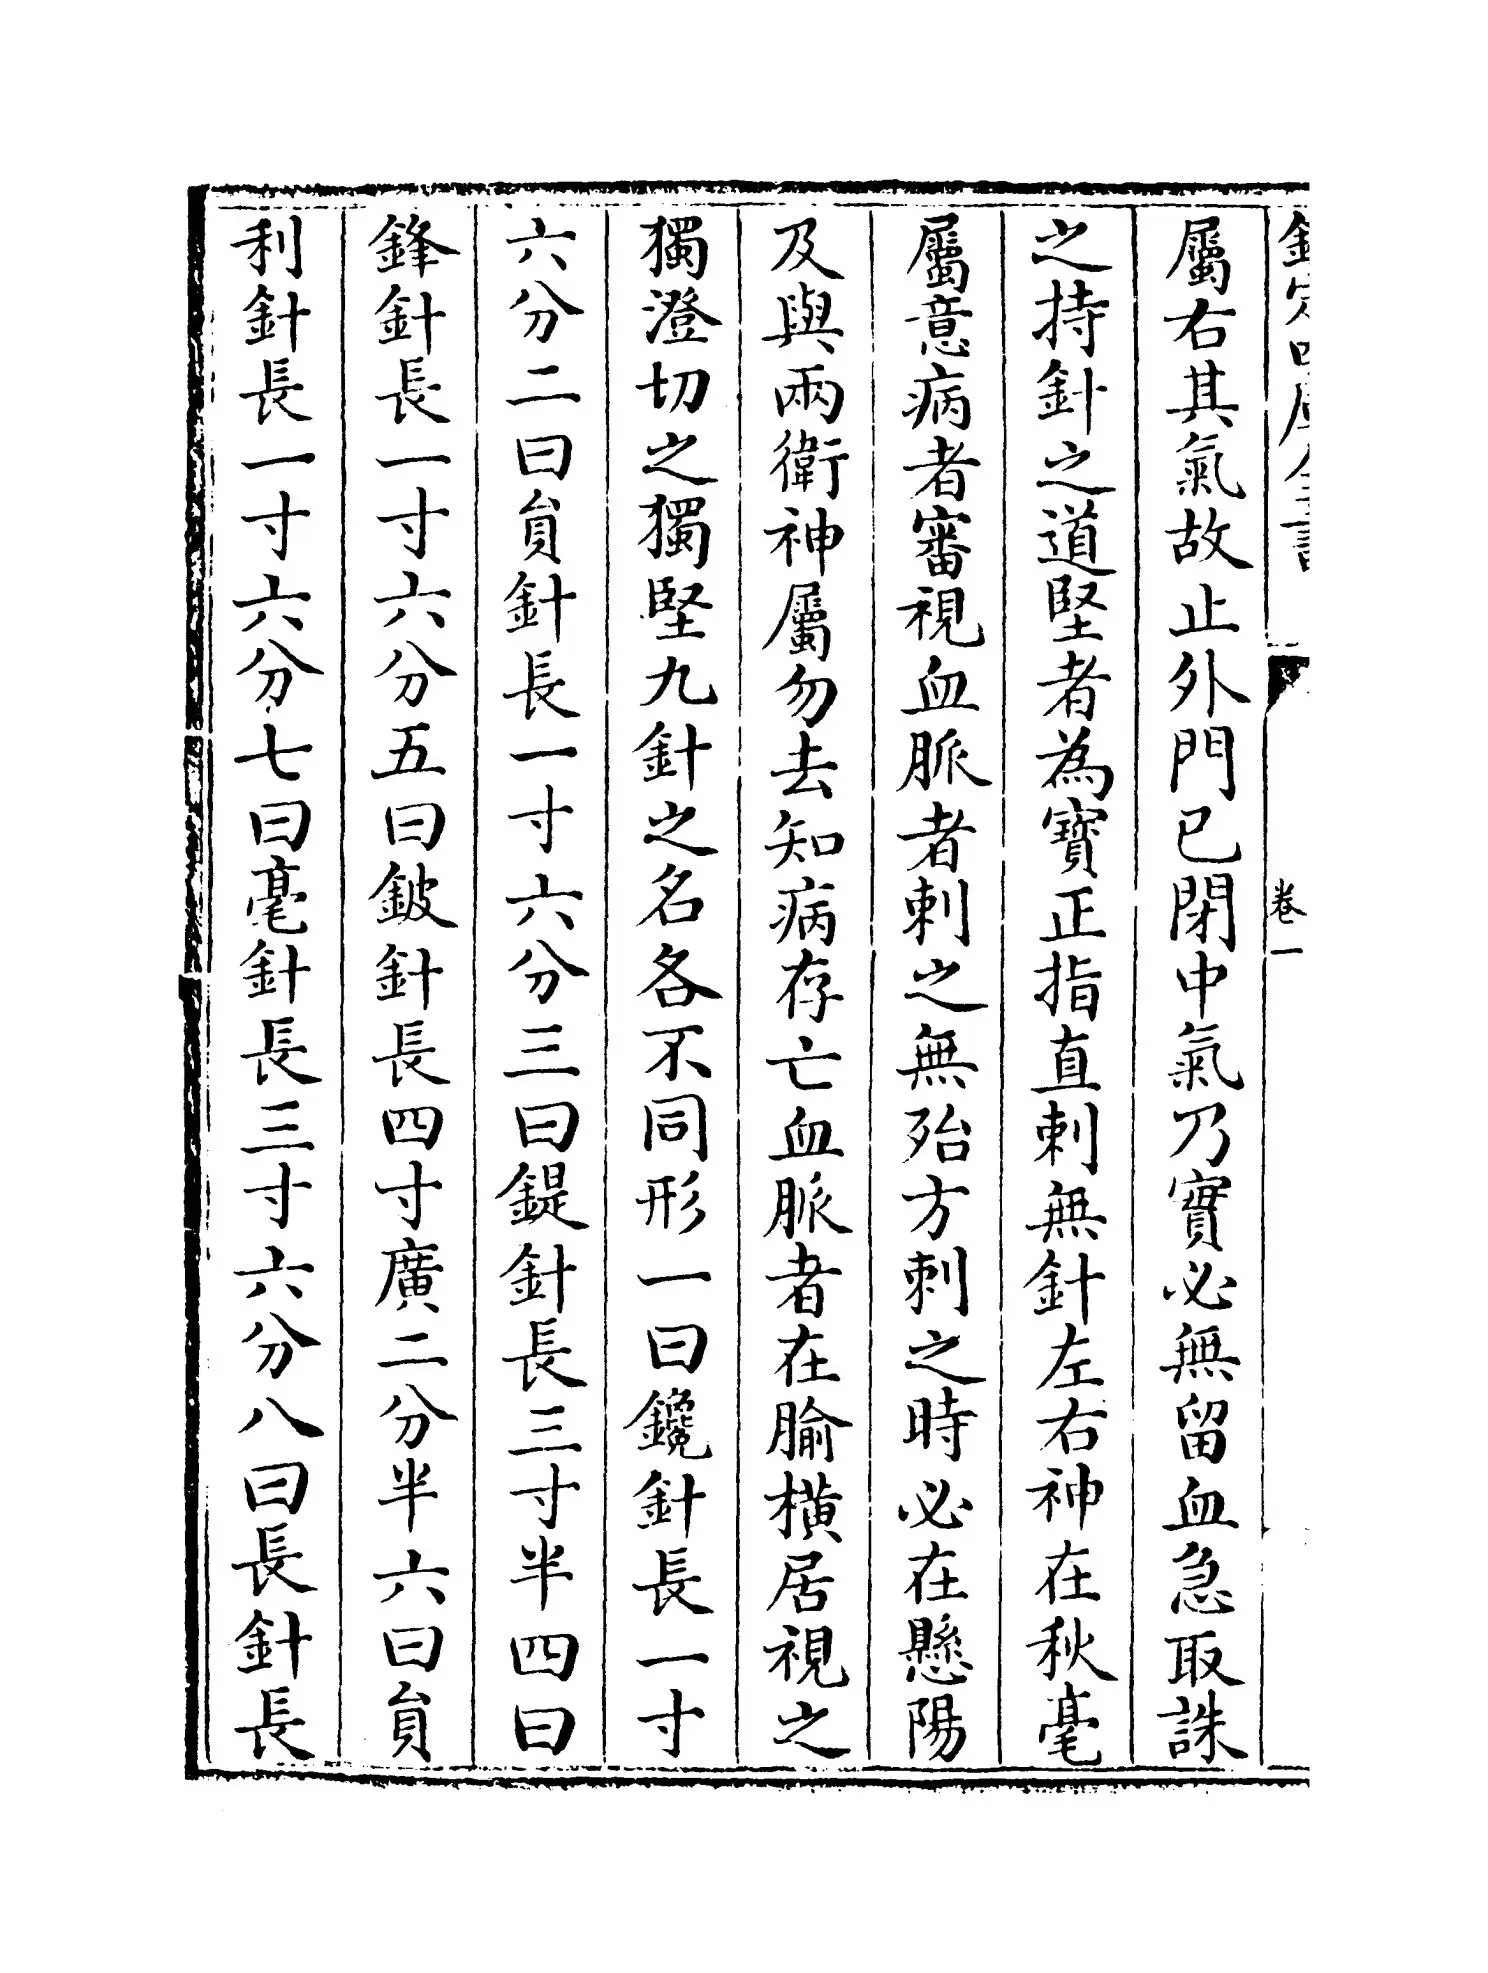 欽定四庫全書
卷一
屬右其氣故止外門已閉中氣乃實必無留血急取誅
之持針之道堅者為寶正指直刺無針左右神在秋毫
屬意病者審視血脈者刺之無殆方刺之時必在懸陽
及與兩衛神屬勿去知病存亡血脈者在腧橫居視之
獨澄切之獨堅九針之名各不同形一曰鑱針長一寸
六分二曰員針長一寸六分三曰鍉針長三寸半四曰
鋒針長一寸六分五曰鈹針長四寸廣二分半六曰員
利針長一寸六分七曰毫針長三寸六分八曰長針長